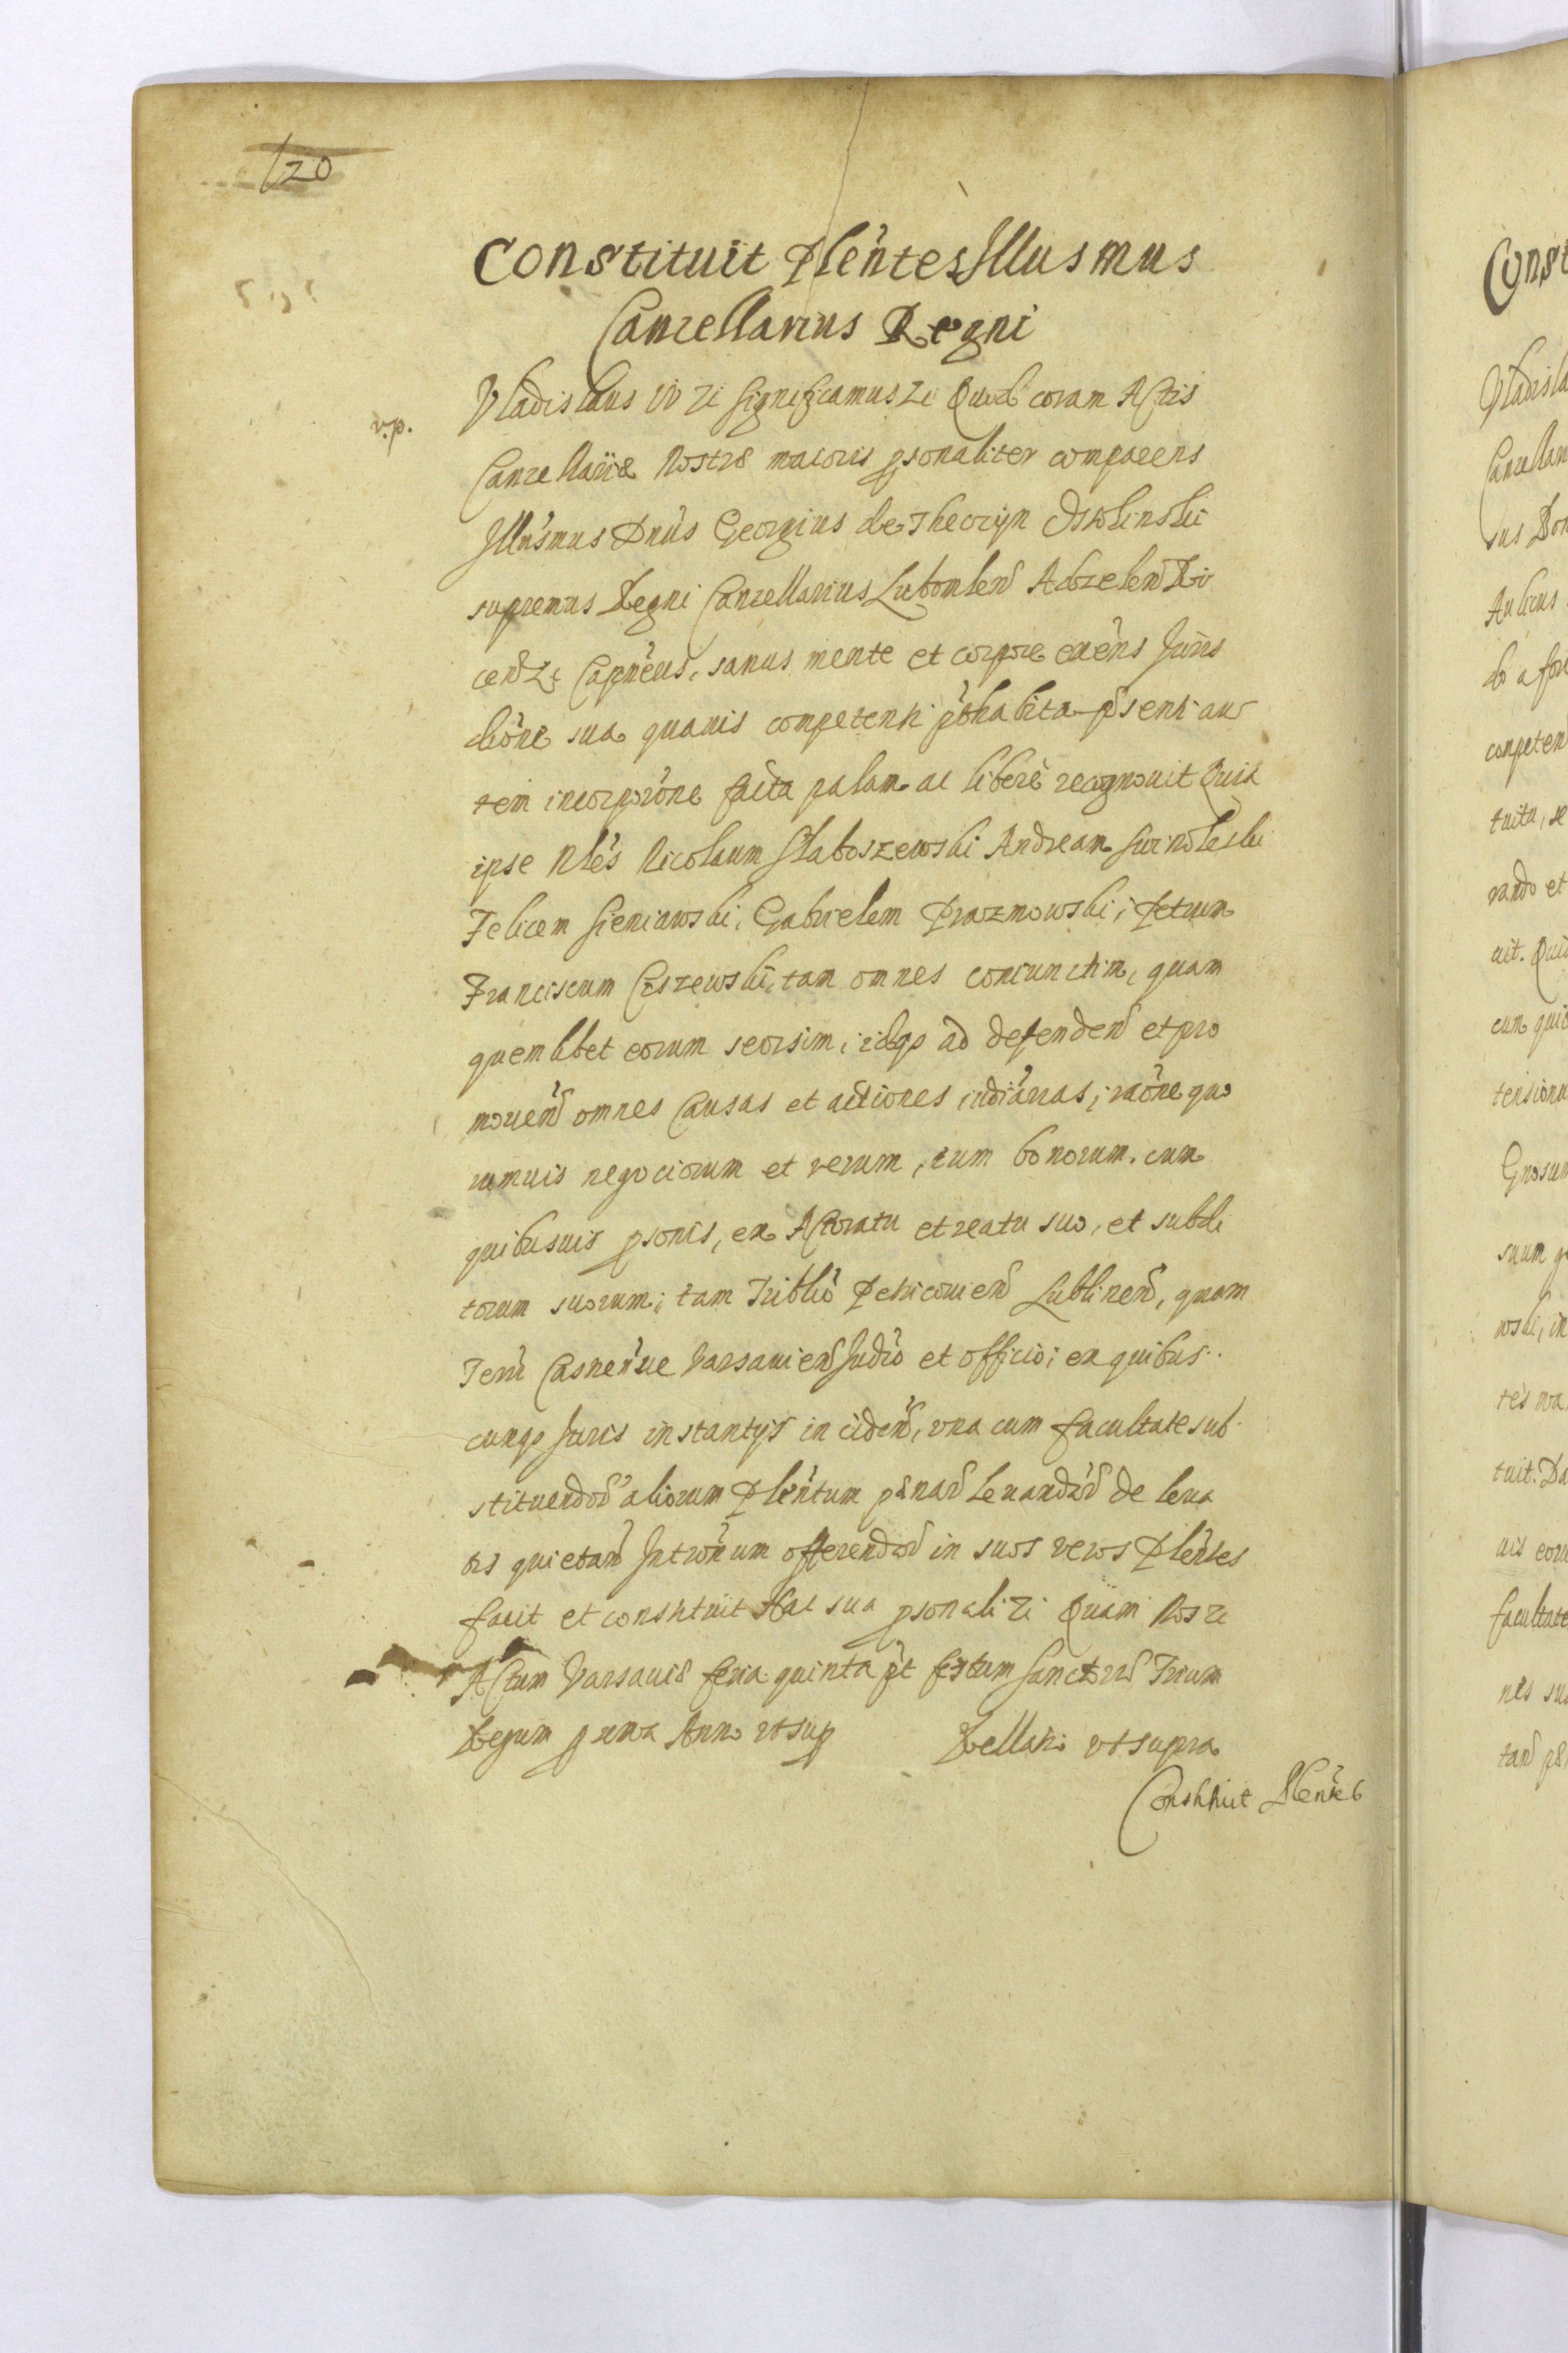 120
Constituit Plentes Illusmus
Cancellarius Regni
v.p.
Vladislaus IV Zi significamus Zi Quod coram Actis
Cancellariæ Nostræ maioris psonaliter comparens
Illusmus Dnus Georgius de Theczyn Ossolinski
supremus Regni Cancellarius Lubomlen Adzelen
cen Zc Capneus, sanus mente et corpore exens Juris
dione sua quauis competenti pthabita psenti au
tem incorporone facta palam ac libere recognouit Quia
ipse Nles Nicolaum Slaboszewski Andream Swinoleski
Felicem Sieniawski, Gabrielem Prazmowski, Petrum
Franciscum Ciszewski, tam omnes coniunctim, quam
quemlibet eorum seorsim, idqs ad defenden et pro
mouen omnes Causas et actiones iudiarias, raone quo
rumuis negociorum et rerum, tum bonorum, cum
quibusuis psonis, ex Actoratu et reatu suo, et subdi
torum suorum; tam Triblio Petricouien Lublinen, quam
Terri Casneue Varsauien Judio et officio; ex quibus
cunqs Juris instantijs inciden, una cum facultate sub
stituendor aliorum Plentum pænar leuandar de leua
tis quietan Introrum offerendor in suos veros Plentes
facit et constituit Hac sua psonali Zi Quam Nos Zi
Actum Varsauiæ feria quinta pt festum Sanctor Trium
Regum Anno vt sup Rellati vt supra
Constituit Plentes